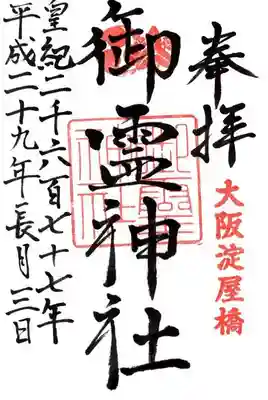 奉拝
大阪淀屋橋
御霊神社
皇紀二千六百七十七年
平成二十九年長月三日